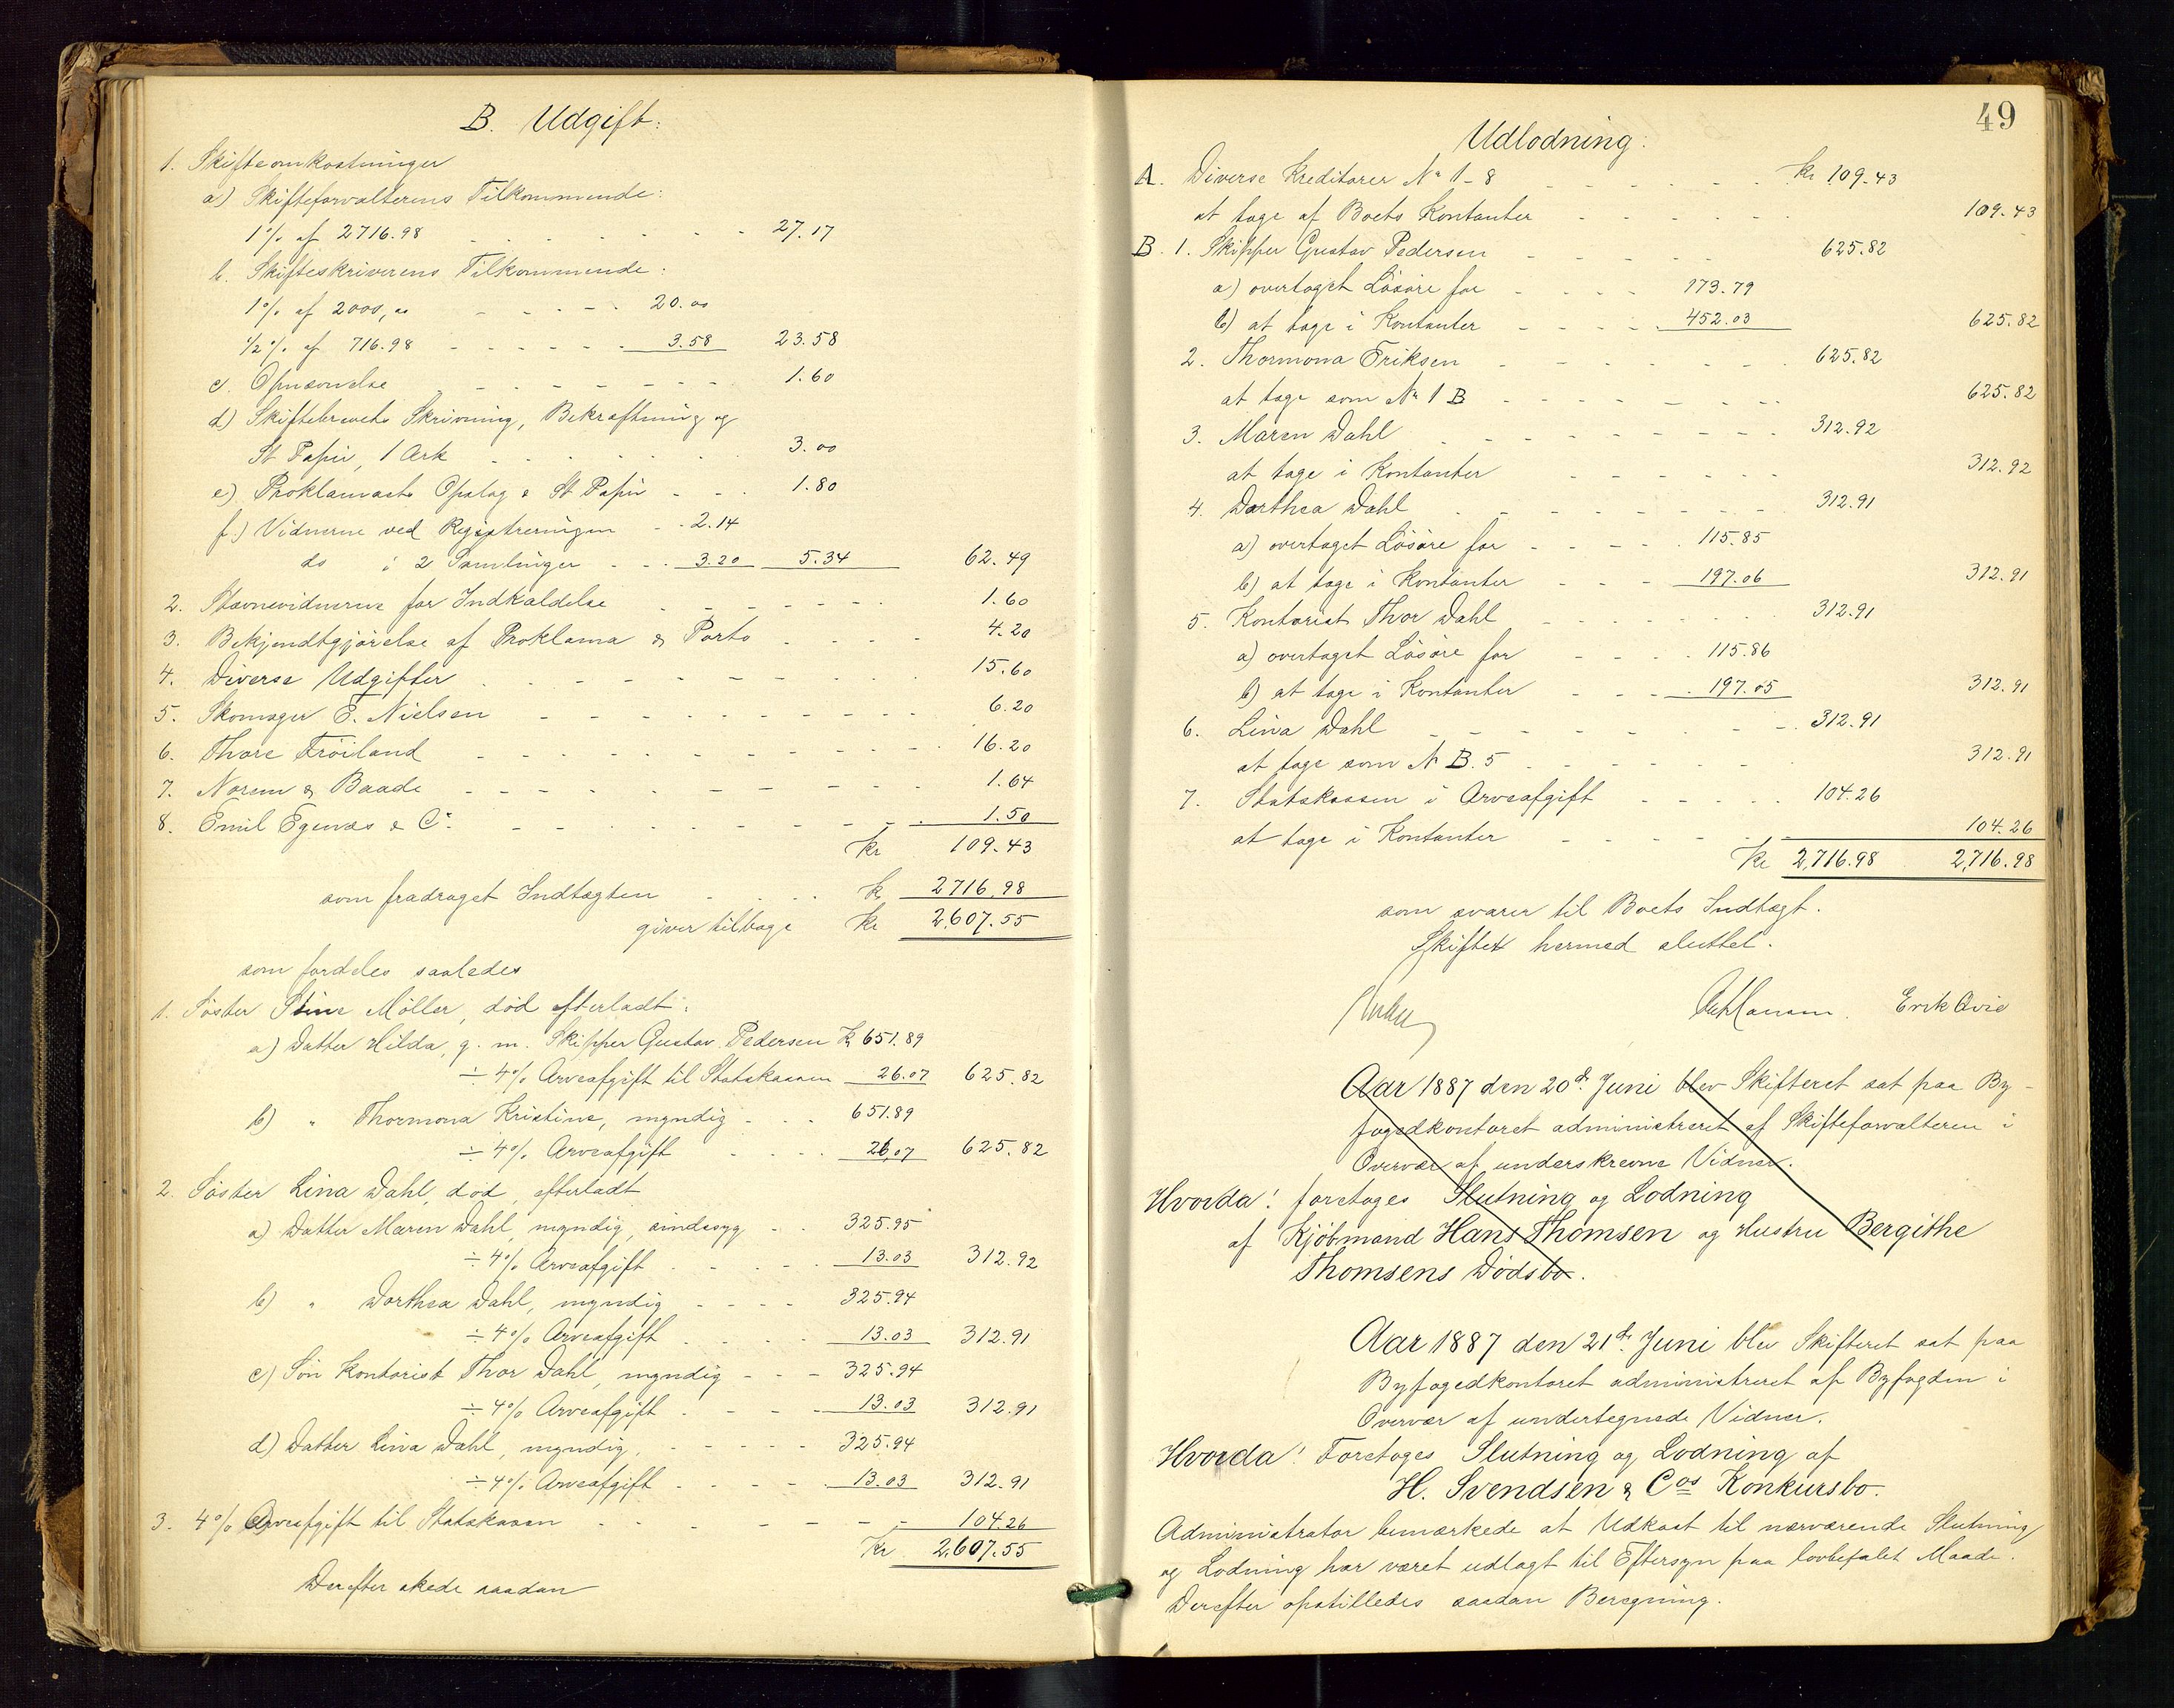 B. Udgift:
1. Skifteomkostninger
a) Skifteforvalterens Tilkommende:
1% af 2716.98 - - - - - - - 27.17
b. Skifteskriverens Tilkommende:
1% af 2000,00 - - - - 20.00
1/2% af 716.98 - - - - - 3.58 23.58
c. Opnævnelse - - - - - - - 1.60
d) Skiftebrevets Skrivning, Bekræftning og
St Papir, 1 Ark - - - - - - 3.00
e) Proklamaets Opslag & St Papir - - - 1.80
f.) Vidnerne ved Registreringen - - 2.14
do i 2 Samlinger - - - 3.20 5.34 62.49
2. Stævnevidnerne for Indkaldelse - - - - - - 1.60
3. Bekjendtgjørelse af Proklama & Porto - - - - 4.20
4. Diverse Udgifter - - - - - - - - - 15.60
5. Skomager E. Nielsen - - - - - - - - - 6.20
6. Thore Frøiland - - - - - - - - - - 16.20
7. Norem & Baade - - - - - - - - - 1.64
8. Emil Egenæs & Co. - - - - - - - - - 1.50
Kr 109.43
som fradraget Indtægten - - - - Kr 2716.98
giver tilbage Kr 2,607.55
som fordeles saaledes
1. Søster Stine Møller, død efterladt:
a) Datter Hilda, g. m. Skipper Gustav Pedersen Kr 651.89
÷ 4% Arveafgift til Statskassen 26.07 625.82
b) " Thormona Kristine, myndig - - - 651.89
÷ 4% Arveafgift - - - - 26,07 625.82
2. Søster Lina Dahl, død, efterladt
a) Datter Maren Dahl, myndig, sindssyg - - 325.95
÷ 4% Arveafgift - - - - 13.03 312.92
b) " Dorthea Dahl, myndig - - - - 325.94
÷ 4% Arveafgift - - - - 13.03 312.91
c) Søn Kontorist Thor Dahl, myndig - - - 325.94
÷ 4% Arveafgift - - - - 13.03 312.91
d) Datter Lina Dahl, myndig, - - - - - 325.94
÷ 4% Arveafgift - - - - - 13.03 312.91
3. 4% Arveafgift til Statskassen - - - - - - - 104.26
Kr 2,607.55
Derefter skede saadan
49
Udlodning:
A. Diverse Kreditorer No 1-8 - - - - - - Kr 109.43
at tage af Boets Kontanter - - - - - - 109.43
B. 1. Skipper Gustav Pedersen - - - - - 625.82
a) overtaget Løsøre for - - - - 173.79
b) at tage i Kontanter - - - - 452.03 625.82
2. Thormona Eriksen - - - - - - 625.82
at tage som No 1 B - - - - - - - 625.82
3. Maren Dahl - - - - - - - - - 312.92
at tage i Kontanter - - - - - - 312.92
4. Dorthea Dahl - - - - - - - - 312.91
a) overtaget Løsøre for - - - - 115.85
b) at tage i Kontanter - - - 197.06 312.91
5. Kontorist Thor Dahl - - - - - - - 312.91
a) overtaget Løsøre for - - - - 115.86
b) at tage i Kontanter - - - - 197.05 312.91
6. Lina Dahl - - - - - - - - - 312.91
at tage som N B. 5 - - - - - - 312.91
7. Statskassen i Arveafgift - - - - - 104.26
at tage i Kontanter - - - - - - 104.26
Kr 2,716.98 2,716.98
som svarer til Boets Indtægt.
Skiftet hermed sluttet.
Erik Qvie
Aar 1887 den 20de Juni blev Skifteret sat paa By-
fogedkontoret administreret af Skifteforvalteren i
Overvær af underskrevne Vidner.
Hvorda! foretoges Slutning og Lodning
af Kjøbmand Hans Thomsen og Hustru Bergithe
Thomsens Dødsbo.
Aar 1887 den 21de Juni blev Skifteret sat paa
Byfogedkontoret administreret af Byfogden i
Overvær af undertegnede Vidner.
Hvorda! Foretoges Slutning og Lodning af
H. Svendsen & Cos Konkursbo.
Administrator bemærkede at Udkast til nærværende Slutning
og Lodning har været udlagt til Eftersyn paa lovbefalet Maade.
Derefter opstilledes saadan Beregning.